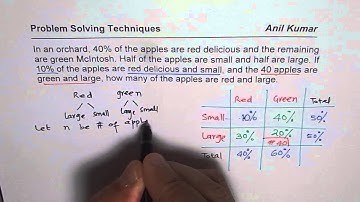 Problem Solving Techniques
Anil Kumar
In an orchard, 40% of the apples are red delicious and the remaining
are green McIntosh. Half of the apples are small and half are large. If
10% of the apples are red delicious and small, and the 40 apples are
green and large, how many of the apples are red and large.
Red green
Large Small Large Small
Let n be # of apple
Red Green Total
Small 10% 40% 50%
Large 30% 20% 50%
#40
Total 40% 60%